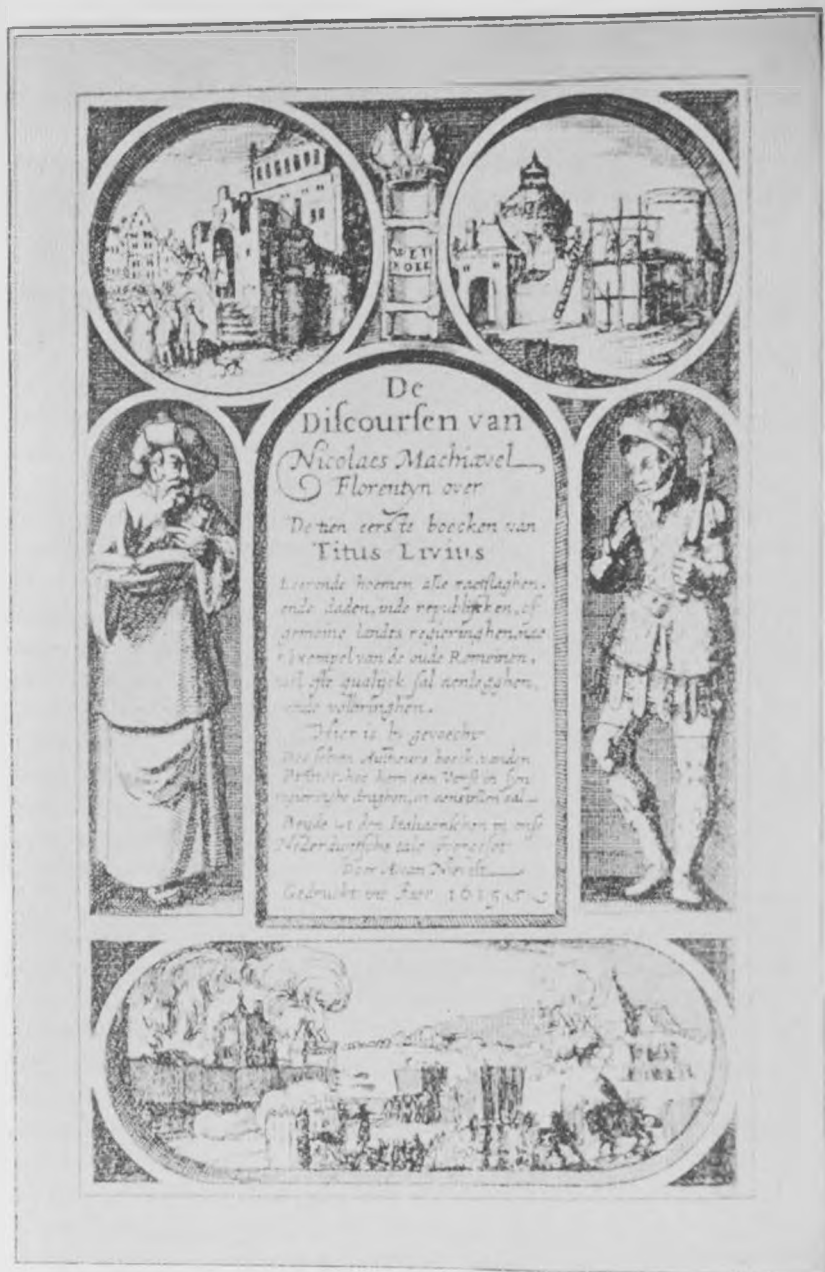 WET
BOEK
De
Discoursen van
Nicolaes Machiavel
Florentyn over
De tien eerste boecken van
Titus Livius
Leerende hoemen alle raetslaghen,
ende daden, inde republijcken, of
gemeine landes regieringhen, nae
Exempel van de oude Romeinen,
wel ofte qualijck sal aenlegghen,
ende volbringhen.
Hier is by gevoecht
Des selven Autheurs boeck vanden
Prince, hoe hem een Vorst in syn
regieringhe draghen, en aenstellen sal
Beyde ut den Italiaenschen in onse
Nederduytsche tale overgeset
Door A. van Nievelt
Gedruckt int Jaer 1615